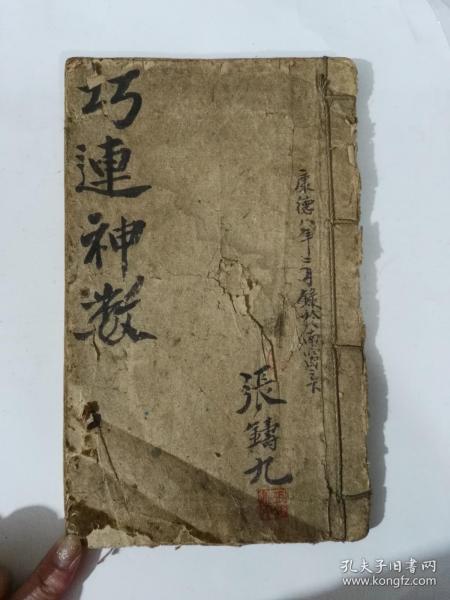 康德八年二月錄於南窗之下
張鑄九
巧連神数
孔夫子旧书网
www.kongfz.com